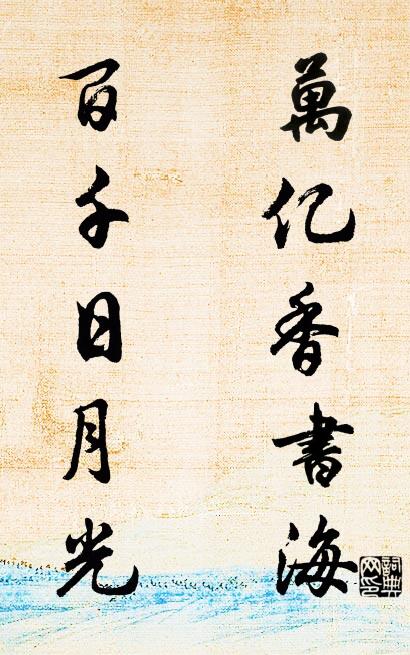 萬亿香書海
百千日月光
詞典网印